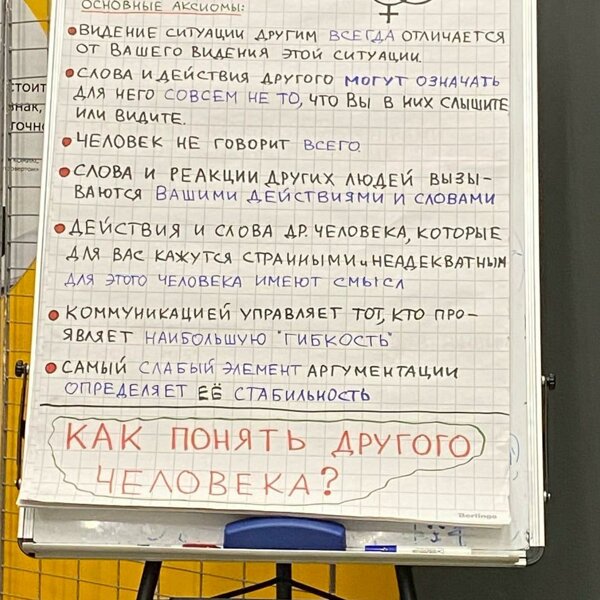 ОСНОВНЫЕ АКСИОМЫ:
ВИДЕНИЕ СИТУАЦИИ ДРУГИМ ВСЕГДА ОТЛИЧАЕТСЯ
ОТ ВАШЕГО ВИДЕНИЯ ЭТОЙ СИТУАЦИИ.
СЛОВА И ДЕЙСТВИЯ ДРУГОГО МОГУТ ОЗНАЧАТЬ
ДЛЯ НЕГО СОВСЕМ НЕ ТО, ЧТО ВЫ В НИХ СЛЫШИТЕ
ИЛИ ВИДИТЕ.
ЧЕЛОВЕК НЕ ГОВОРИТ ВСЕГО.
СЛОВА И РЕАКЦИИ ДРУГИХ ЛЮДЕЙ ВЫЗЫ-
ВАЮТСЯ ВАШИМИ ДЕЙСТВИЯМИ И СЛОВАМИ
ДЕЙСТВИЯ И СЛОВА ДР. ЧЕЛОВЕКА, КОТОРЫЕ
ДЛЯ ВАС КАЖУТСЯ СТРАННЫМИ и НЕАДЕКВАТНЫМ
ДЛЯ ЭТОГО ЧЕЛОВЕКА ИМЕЮТ СМЫСЛ
КОММУНИКАЦИЕЙ УПРАВЛЯЕТ ТОТ, КТО ПРО-
ЯВЛЯЕТ НАИБОЛЬШУЮ "ГИБКОСТЬ"
САМЫЙ СЛАБЫЙ ЭЛЕМЕНТ АРГУМЕНТАЦИИ
ОПРЕДЕЛЯЕТ ЕЁ СТАБИЛЬНОСТЬ
КАК ПОНЯТЬ ДРУГОГО
ЧЕЛОВЕКА?
Berlingo